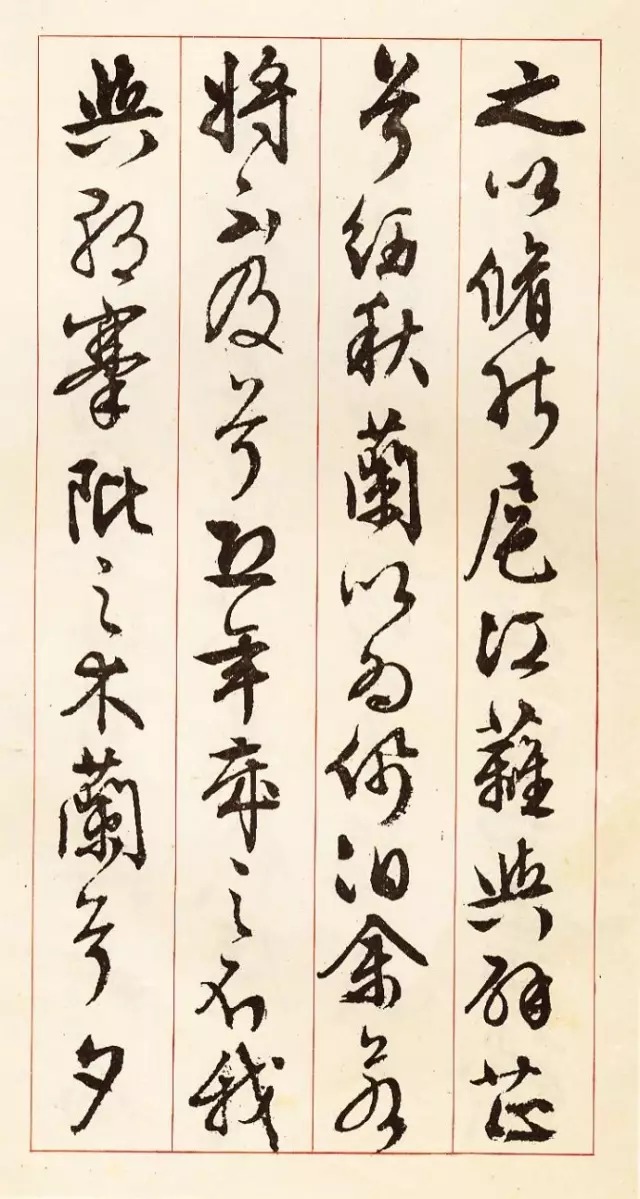 之以脩能扈江蘺與辟芷
兮紉秋蘭以為佩汨余若
將不及兮恐年歲之不我
與朝搴阰之木蘭兮夕